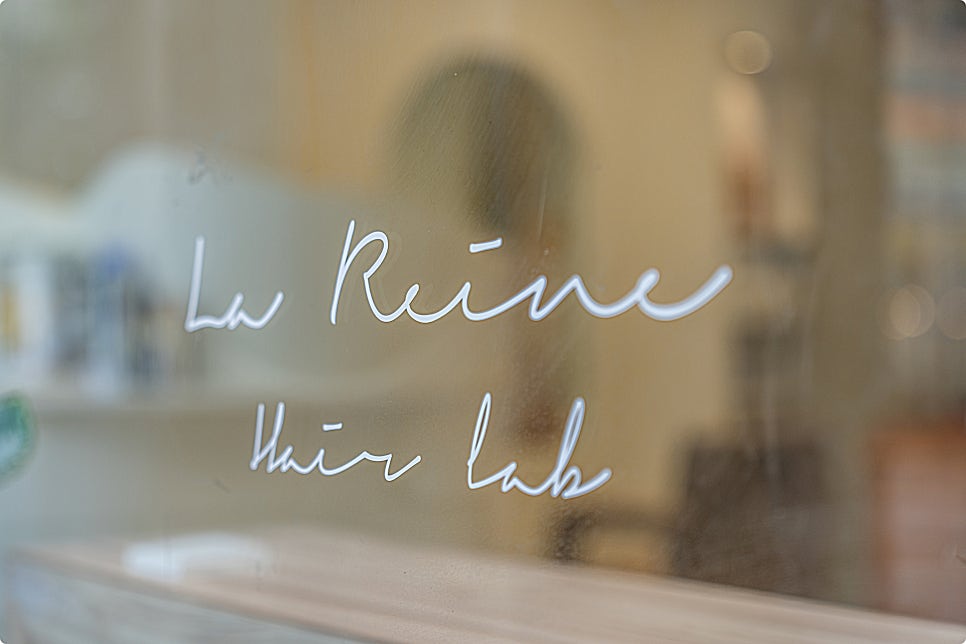 La Reine
Hair lab